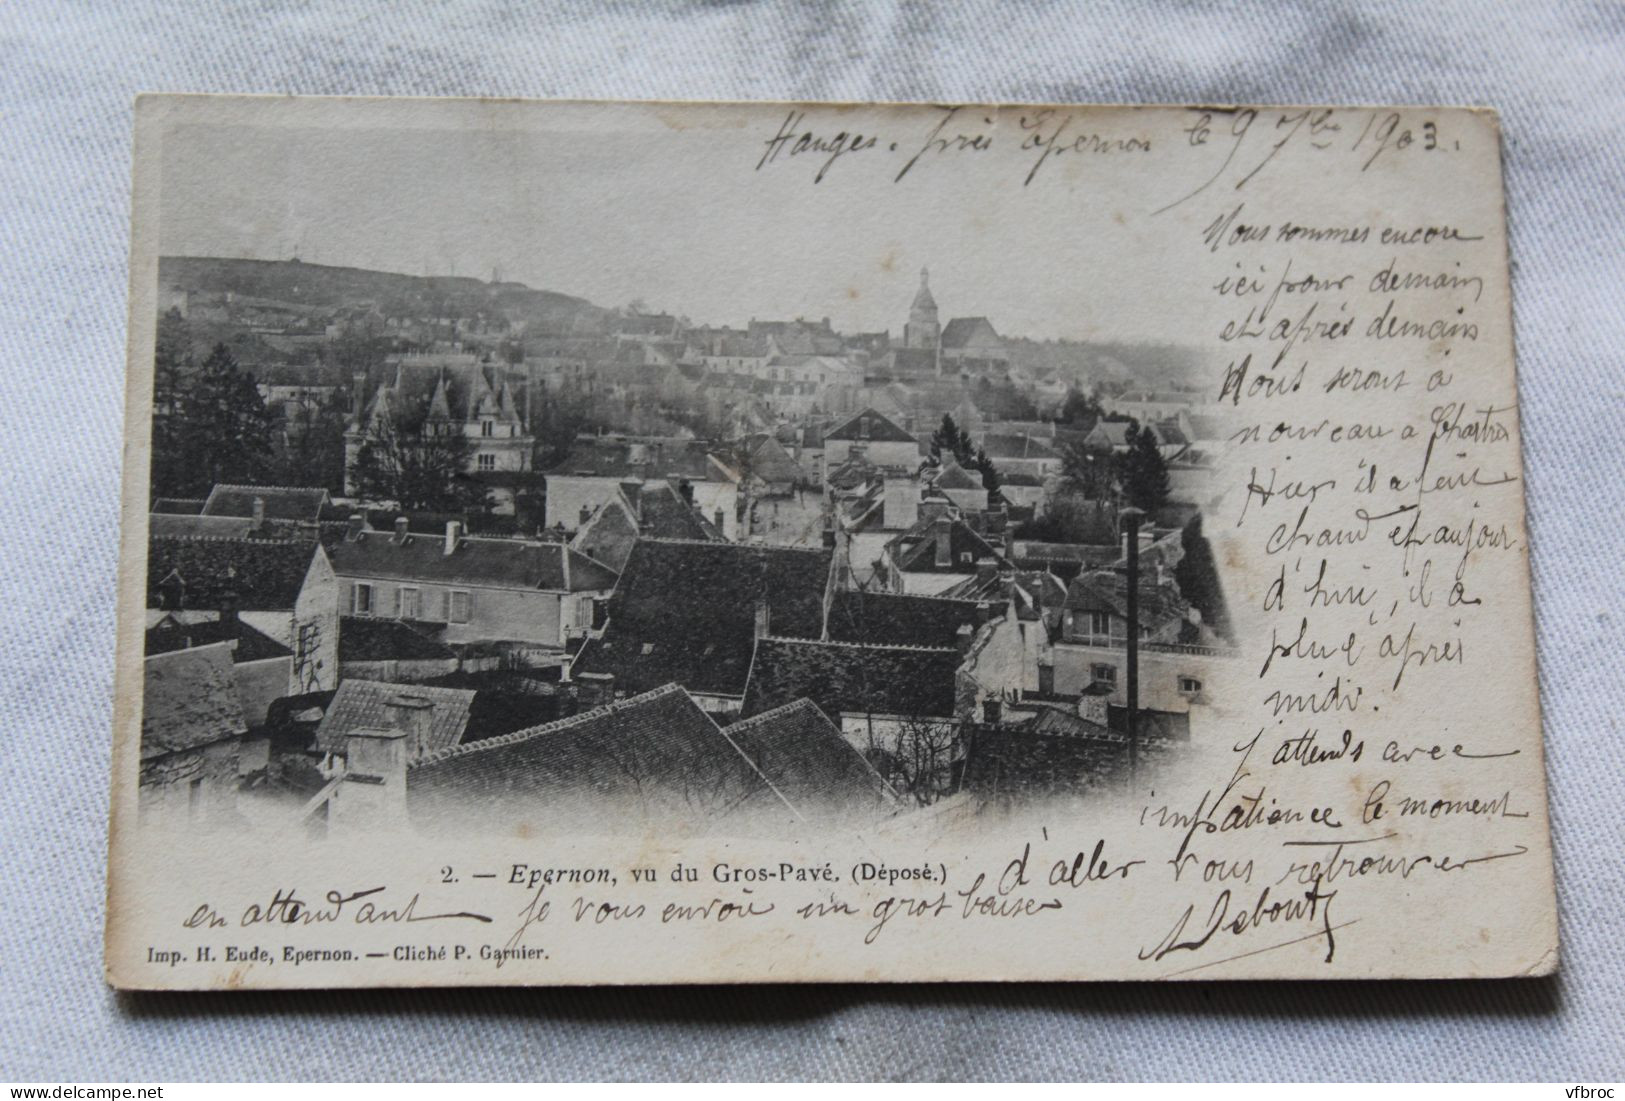 Hanges. près Epernon le 9 7bre 1903.
Nous sommes encore
ici pour demain
et après demain
Nous serons à
nouveau a Chartres
Hier il a fait
chaud et aujour
d'hui, il a
plu après
midi.
J'attends avec
impatience le moment
d'aller vous retrouver
en attendant je vous envoie un gros baiser
Debout
2. — Epernon, vu du Gros-Pavé. (Déposé.)
Imp. H. Eude, Epernon. — Cliché P. Garnier.
vfbroc